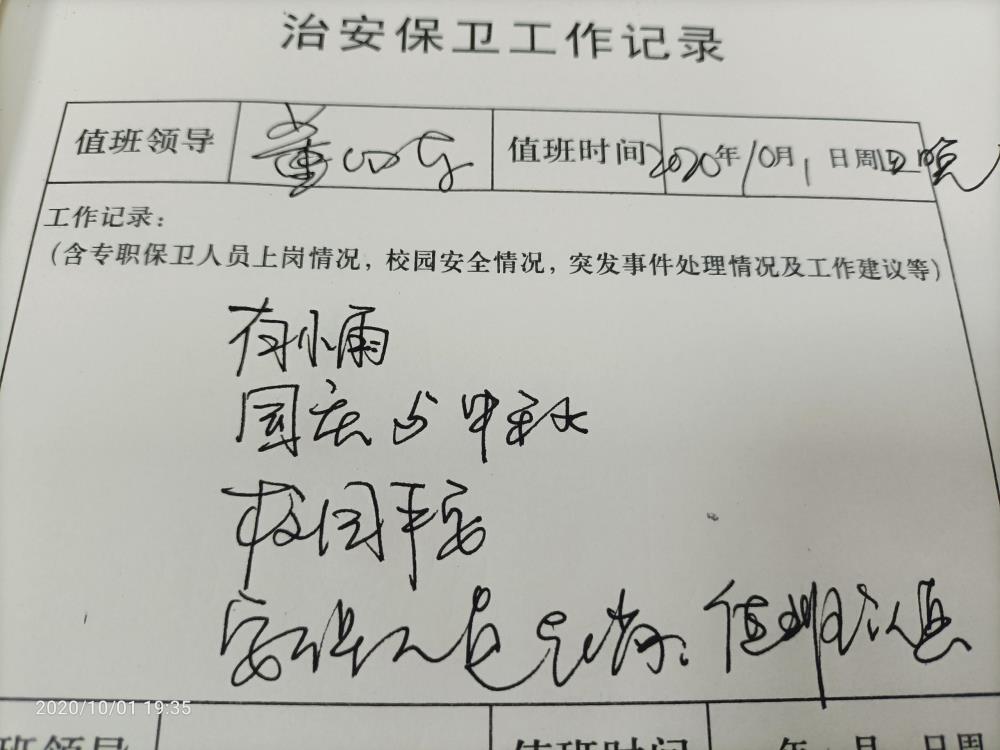 治安保卫工作记录
值班领导 董 值班时间 2020年10月1日周四晚
工作记录：
（含专职保卫人员上岗情况，校园安全情况，突发事件处理情况及工作建议等）
有小雨
国庆与中秋
校园平安
安保人员完好。值班认真
2020/10/01 19:35
班领导 值班时间 年 月 日周